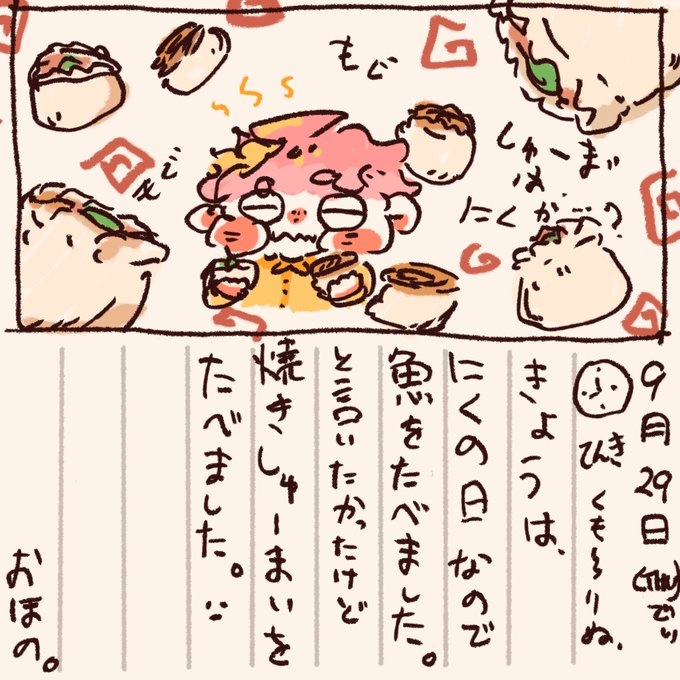 もじ
もじ
しゅーまい
は
にくが…?
9月29日(THU)でい
てんき くも〜りぬ、
きょうは、
にくの日なので
魚をたべました。
と言いたかったけど
焼きしゅーまいを
たべました。
おほの。